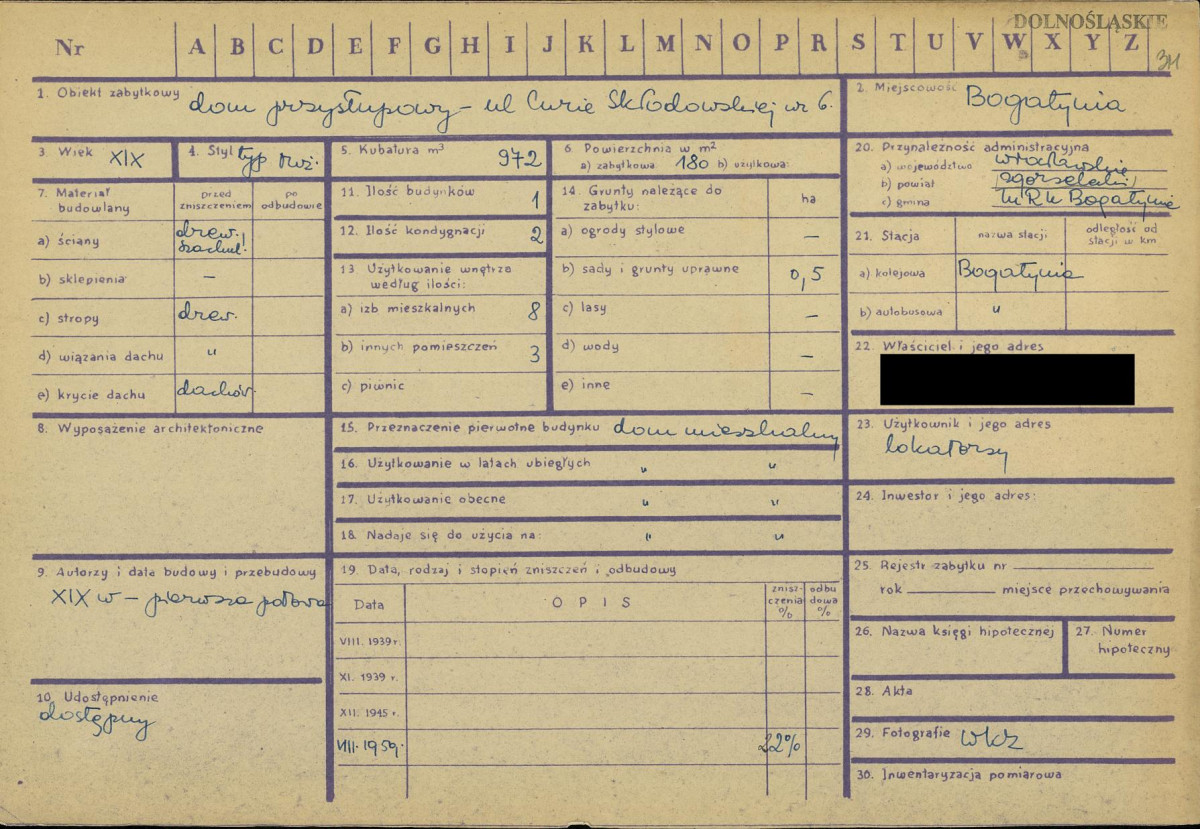 DOLNOŚLĄSKIE
Nr A B C D E F G H I J K L M N O P R S T U V W X Y Z
311
1. Obiekt zabytkowy dom przysłupowy – ul Curie Skłodowskiej nr 6.
2. Miejscowość Bogatynia
3. Wiek XIX
4. Styl typ
5. Kubatura m³ 972
6. Powierzchnia w m²
a) zabytkowa 180 b) użytkowa:
7. Materiał budowlany
przed zniszczeniem
po odbudowie
a) ściany drew. szachul.
b) sklepienia –
c) stropy drew.
d) wiązania dachu "
e) krycie dachu dachów.
8. Wyposażenie architektoniczne
9. Autorzy i data budowy i przebudowy
XIX w – pierwsza połowa
10. Udostępnienie
dostępny
11. Ilość budynków 1
12. Ilość kondygnacji 2
13 Użytkowanie wnętrza
według ilości:
a) izb mieszkalnych 8
b) innych pomieszczeń 3
c) piwnic
14. Grunty należące do
zabytku: ha
a) ogrody stylowe –
b) sady i grunty uprawne 0,5
c) lasy –
d) wody –
e) inne –
15. Przeznaczenie pierwotne budynku dom mieszkalny
16. Użytkowanie w latach ubiegłych " "
17. Użytkowanie obecne " "
18. Nadaje się do użycia na: " "
19. Data, rodzaj i stopień zniszczeń i odbudowy
Data
OPIS
znisz-
czenia
%
odbu
dowa
%
VIII. 1939 r.
XI. 1939 r.
XII. 1945 r.
VIII. 1959. 22%
20. Przynależność administracyjna
a) województwo wrocławskie
b) powiat zgorzelecki
c) gmina MRN Bogatynia
21. Stacja
nazwa stacji
odległość od
stacji w km
a) kolejowa Bogatynia
b) autobusowa "
22. Właściciel i jego adres
23. Użytkownik i jego adres
lokatorzy
24. Inwestor i jego adres:
25. Rejestr zabytku nr
rok miejsce przechowywania
26. Nazwa księgi hipotecznej
27. Numer
hipoteczny
28. Akta
29. Fotografie WKZ
30. Inwentaryzacja pomiarowa